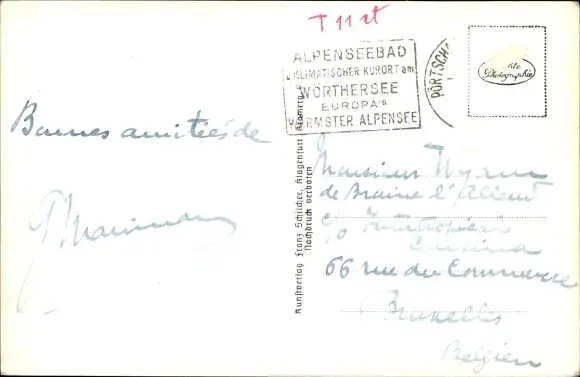 T 11 ct
ALPENSEEBAD
u. KLIMATISCHER KURORT am
WÖRTHERSEE
EUROPA'S
WÄRMSTER ALPENSEE
PÖRTSCH
Photographie
Bonnes amitiés de
Kunstverlag Franz Schilcher, Klagenfurt
Nachdruck verboten
Monsieur
de Braine l'Alleud
c/o
66 rue du Commerce
Bruxelles
Belgien